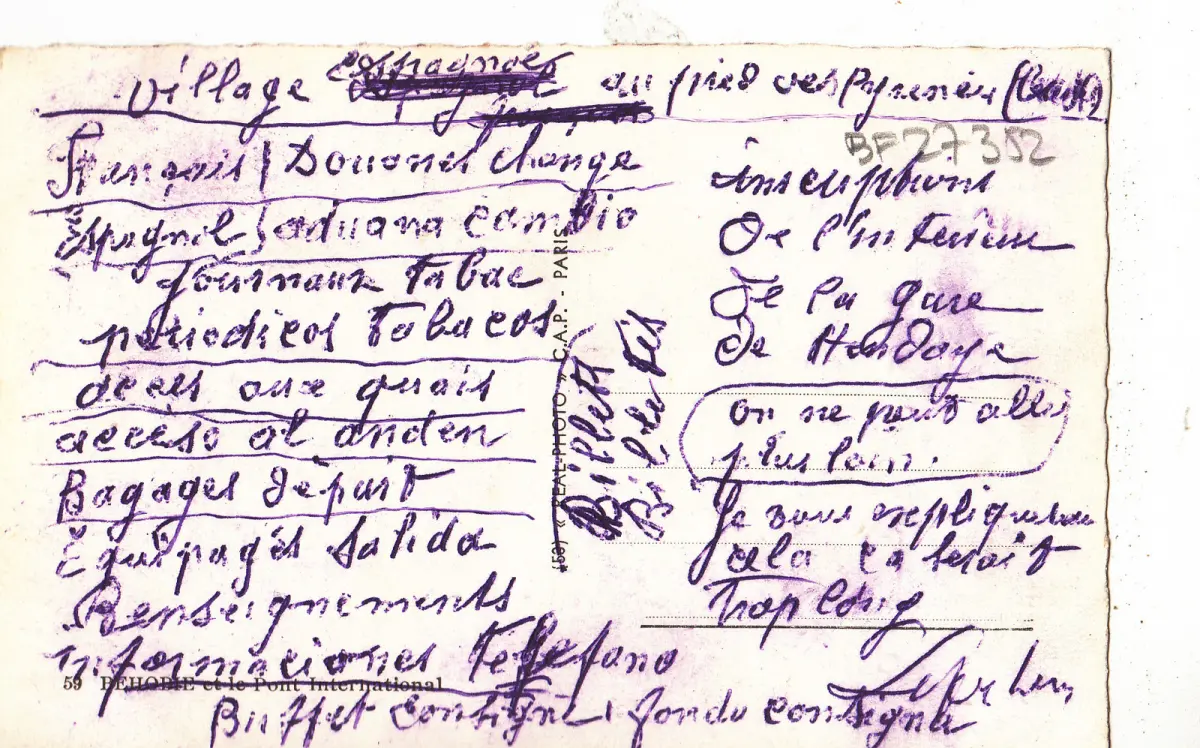 Village espagnol au pied des Pyrénées
Français } Douanes change
Espagnol } aduana cambio
Journaux Tabac
periodicos Tabacos
accès aux quais
acceso al anden
Bagages départ
Equipages Salida
Renseignements
informaciones Telefono
Buffet Consigne fonda consigna
59 BÉHOBIE et le Pont International
(59) « REAL-PHOTO » C.A.P. - PARIS
Billets
Billetes
BF27352
inscriptions
De l'intérieur
De la gare
de Hendaye
on ne peut aller
plus loin.
Je vous expliquerai
cela ça serait
Trop long